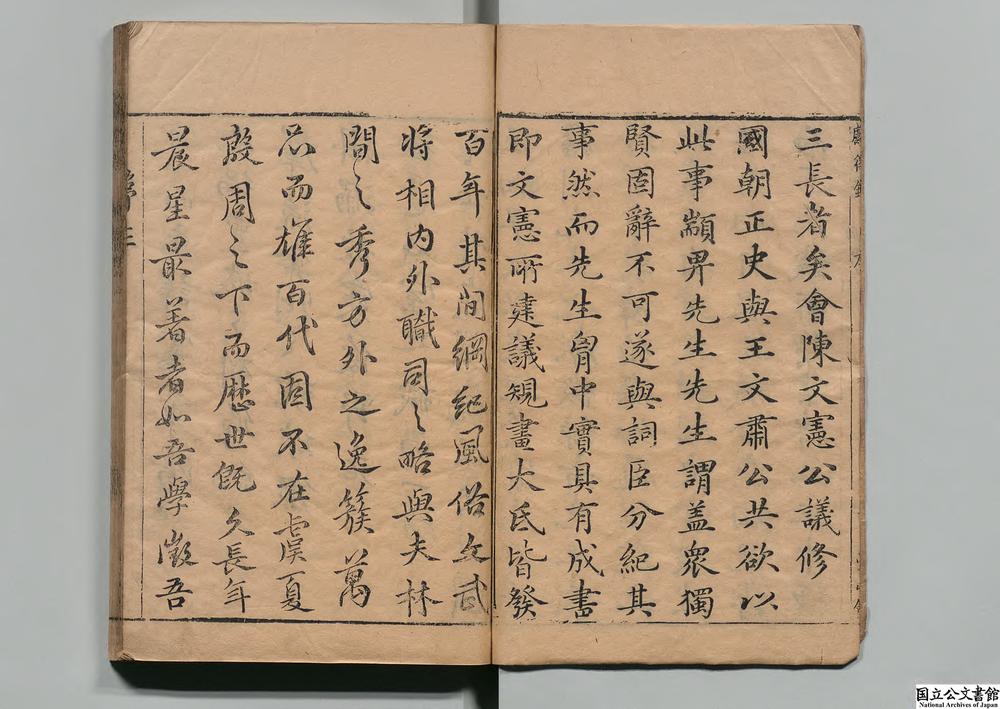 三長者矣會陳文憲公議修
國朝正史與王文肅公共欲以
此事顓畀先生先生謂盖衆獨
賢固辭不可遂與詞臣分紀其
事然而先生胷中實具有成書
即文憲所建議規畫大氐皆發
百年其間綱紀風俗文武
將相内外職司之略與夫林
間之秀方外之逸簇萬
品而雄百代固不在虞夏
殷周之下而歷世旣久長年
晨星最著者如吾學徵吾
序 三
国立公文書館
National Archives of Japan